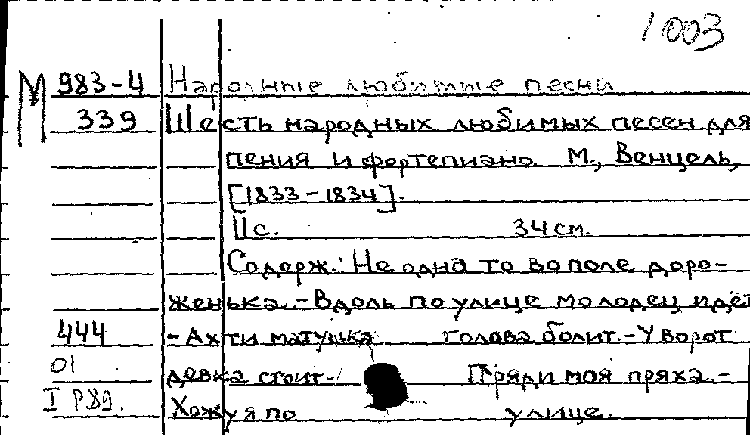 1003
М 983-4 Народные любимые песни
339 Шесть народных любимых песен для
пения и фортепиано. М., Венцель,
[1833-1834].
11с. 34см.
Содерж.: Не одна то во поле доро-
женька.-Вдоль по улице молодец идёт
444 -Ахти матушка голова болит.-У ворот
01 девка стоит- Пряди моя пряха.-
I Р89. Хожу я по улице.